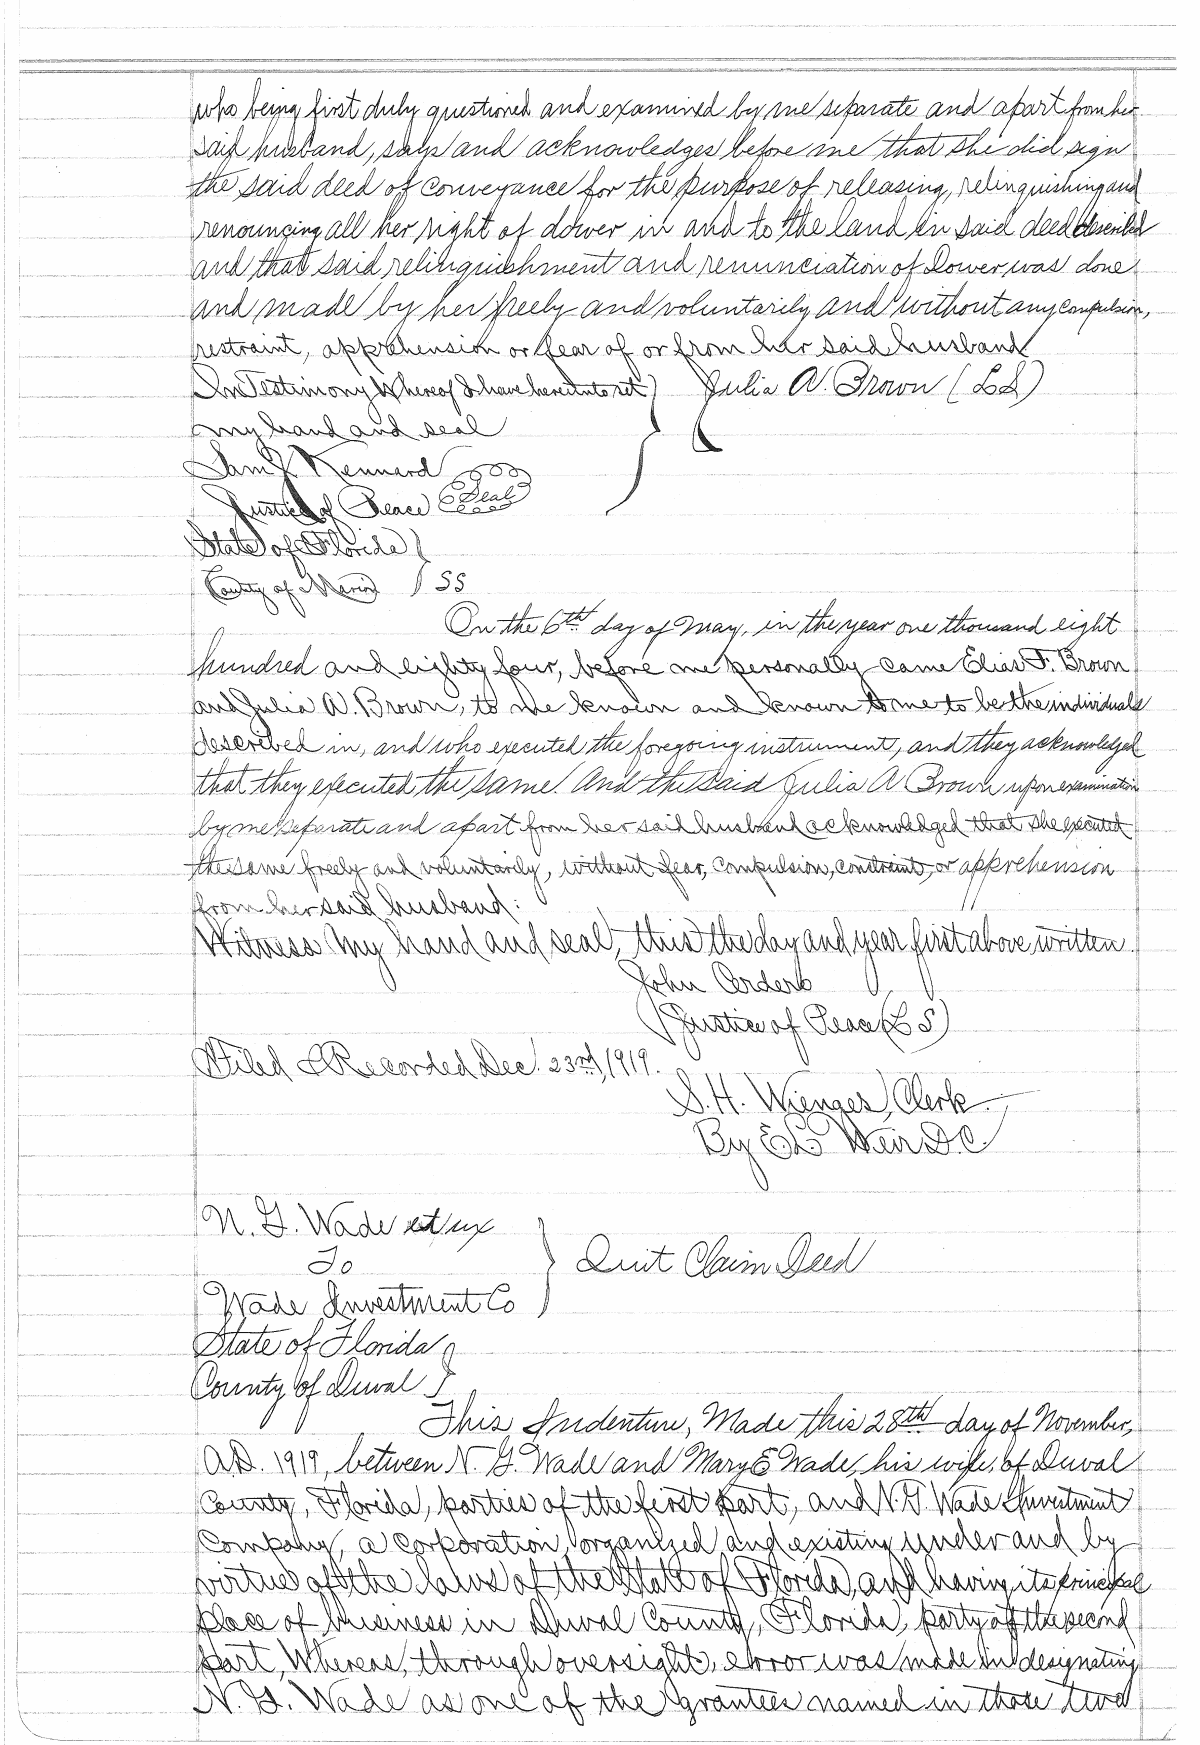 who being first duly questioned and examined by me separate and apart from her
said husband, says and acknowledges before me that she did sign
the said deed of conveyance for the purpose of releasing, relinquishing and
renouncing all her right of dower in and to the land in said deed described
and that said relinquishment and renunciation of Dower, was done
and made by her freely and voluntarily and without any compulsion,
restraint, apprehension or fear of or from her said husband
In Testimony Whereof I have hereunto set ) Julia A. Brown (LS)
my hand and seal
Sam J Kennard
Justice of Peace Seal
State of Florida )
County of Marion ) SS
On the 6th day of May, in the year one thousand eight
hundred and eighty four, before me personally came Elias F. Brown
and Julia A. Brown, to me known and known to me to be the individuals
described in, and who executed the foregoing instrument, and they acknowledged
that they executed the same. And the said Julia A Brown upon examination
by me separate and apart from her said husband acknowledged that she executed
the same freely and voluntarily, without fear, compulsion, constraint, or apprehension
from her said husband:
Witness My hand and seal, this the day and year first above written.
John
(Justice of Peace (L S)
Filed & Recorded Dec. 23rd, 1919.
S. H. Wienges, Clerk.
By E L Weir D.C
N. G. Wade et ux
To } Quit Claim Deed
Wade Investment Co
State of Florida )
County of Duval )
This Indenture, Made this 28th day of November,
A.D. 1919, between N. G. Wade and Mary E Wade, his wife, of Duval
County, Florida, parties of the first part, and N. G. Wade Investment
Company, a corporation, organized and existing under and by
virtue of the laws of the State of Florida, and having its principal
place of business in Duval County, Florida, party of the second
part, Whereas, through oversight, error was made in designating
N. G. Wade as one of the grantees named in those two